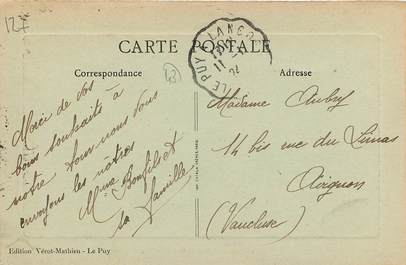 127
CARTE POSTALE
Correspondance
43
Adresse
LE PUY LANGO
11
24
Merci de vos
bons souhaits à
notre tour nous vous
envoyons les nôtres
Mme Bonfils et
sa famille
Madame Aubry
14 bis rue du Limas
Avignon
(Vaucluse)
Edition Vérot-Mathieu - Le Puy